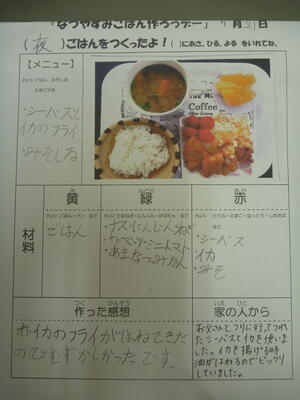 「なつやすみごはん作ろうデー」 7月 日
(夜)ごはんをつくったよ! ( )にあさ、ひる、よる をいれてね。
【メニュー】
れい) ごはん みそしる
たまごやき
・シーバスと
イカのフライ
・みそしる
Coffee
材料
黄
れい) ごはん・パン など
ごはん
緑
みどり
れい) たまねぎ・にんじん・かぼちゃ など
・ナス・にんじん・ねぎ
・キャベツ・ミニトマト
・あまなつみかん
赤
あか
れい) とうふ・たまご・なっとう・しおさば
など
・シーバス
・イカ
・みそ
作った感想
つく かんそう
赤イカのフライがはねてきた
のでむずかしかったです。
家の人から
いえ ひと
お父さんとつりに行ってつれ
たシーバスとイカを使いま
した。イカを揚げる時
油がはねるのでビックリ
していました。